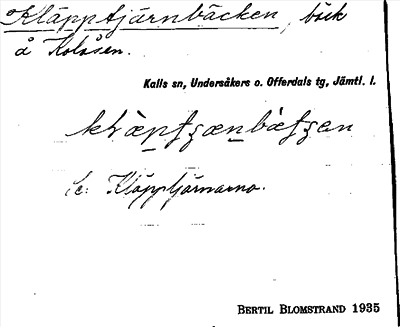 Kläpptjärnbäcken, bäck
å Kolåsen.
Kalls sn, Undersåkers o. Offerdals tg, Jämtl. l.
Se: Kläpptjärnarna.
BERTIL BLOMSTRAND 1935